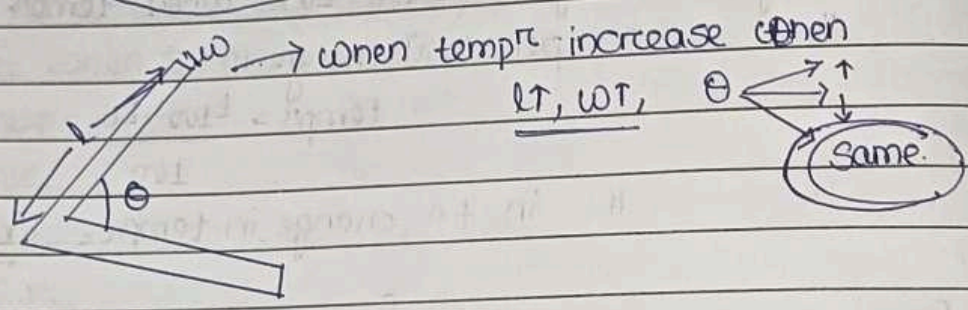 w → when tempr increase then
l↑, w↑, θ ↑
↓
l
same.
θ